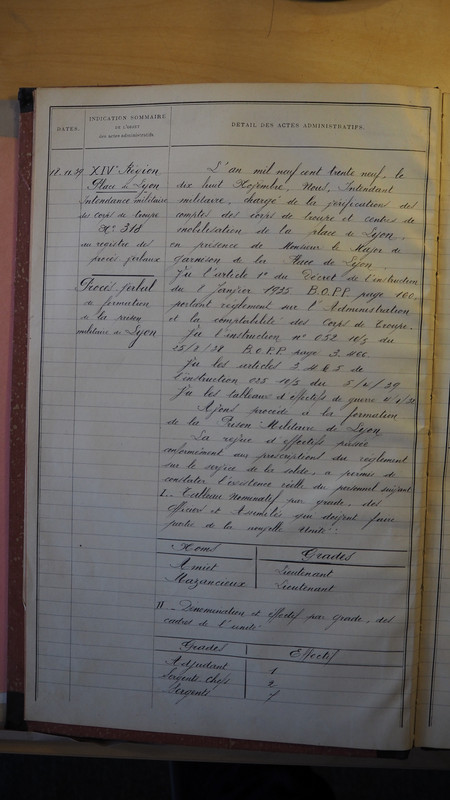 DATES.
INDICATION SOMMAIRE
DE L'OBJET
des actes administratifs.
DÉTAIL DES ACTES ADMINISTRATIFS.
18.11.39
XIVe Région
Place de Lyon
Intendance militaire
des corps de troupe
No 318
au registre des
procès verbaux
Procès verbal
de formation
de la prison
militaire de Lyon
L'an mil neuf cent trente neuf, le
dix huit Novembre, Nous, Intendant
militaire, chargé de la vérification des
comptes des corps de troupe et centres de
mobilisation de la place de Lyon.
en présence de Monsieur le Major de
garnison de la Place de Lyon.
Vu l'article 1er du Décret de l'instruction
du 1 Janvier 1935 B.O.P.P. page 100.
portant règlement sur l'Administration
et la comptabilité des Corps de troupe.
Vu l'instruction no 052 10/5 du
25/2/38 B.O.P.P. page 3.466.
Vu les articles 3, 4 & 5 de
l'instruction 025 10/5 du 5/4/39
Vu les tableaux d'effectifs de guerre
Avons procédé à la formation
de la Prison Militaire de Lyon.
La revue d'effectifs passée
conformément aux prescriptions du règlement
sur le service de la solde, a permis de
constater l'existence réelle du personnel suivant
I_ Tableau Nominatif par grade, des
officiers et Assimilés qui doivent faire
partie de la nouvelle Unité :
Noms Grades
Amiet Lieutenant
Mazancieux Lieutenant
II _ Dénomination et effectif par grade, des
cadres de l'unité
Grades Effectif
Adjudant 1
Sergents chefs 2
Sergents 7